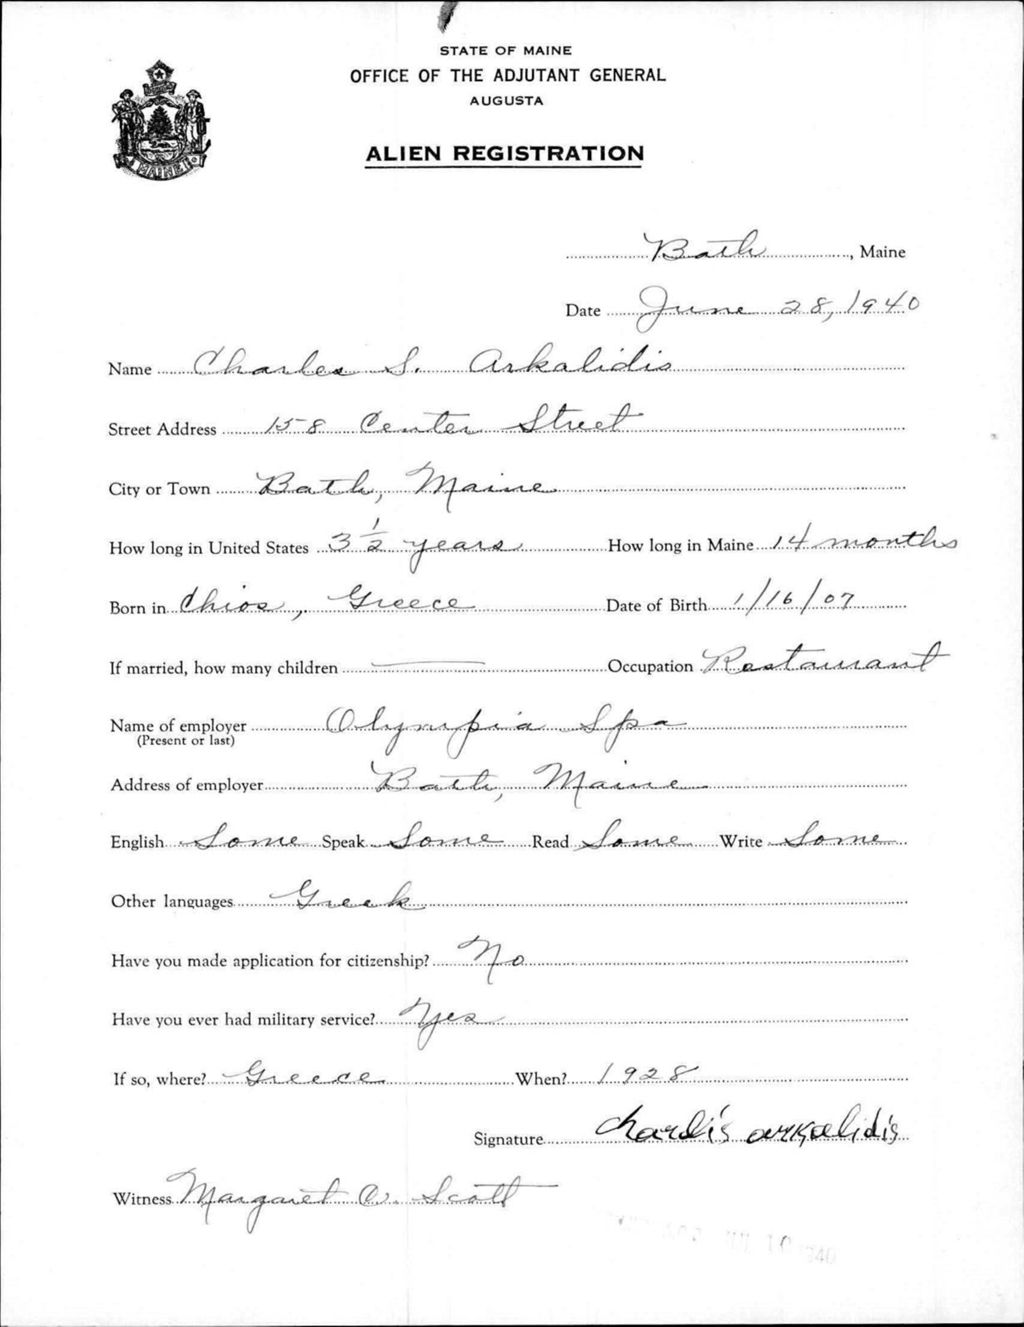 STATE OF MAINE
OFFICE OF THE ADJUTANT GENERAL
AUGUSTA
ALIEN REGISTRATION
MAINE
Bath, Maine
Date June 28, 1940
Name Charles S. Arkalidis
Street Address 158 Center Street
City or Town Bath, Maine
How long in United States 3 1/2 years How long in Maine 14 months
Born in Chios, Greece Date of Birth 1/16/07
If married, how many children — Occupation Restaurant
Name of employer Olympia Spa
(Present or last)
Address of employer Bath, Maine
English Some Speak Some Read Some Write Some
Other languages Greek
Have you made application for citizenship? No
Have you ever had military service? Yes
If so, where? Greece When? 1928
Signature Charlis arkalidis
Witness Margaret C. Scott